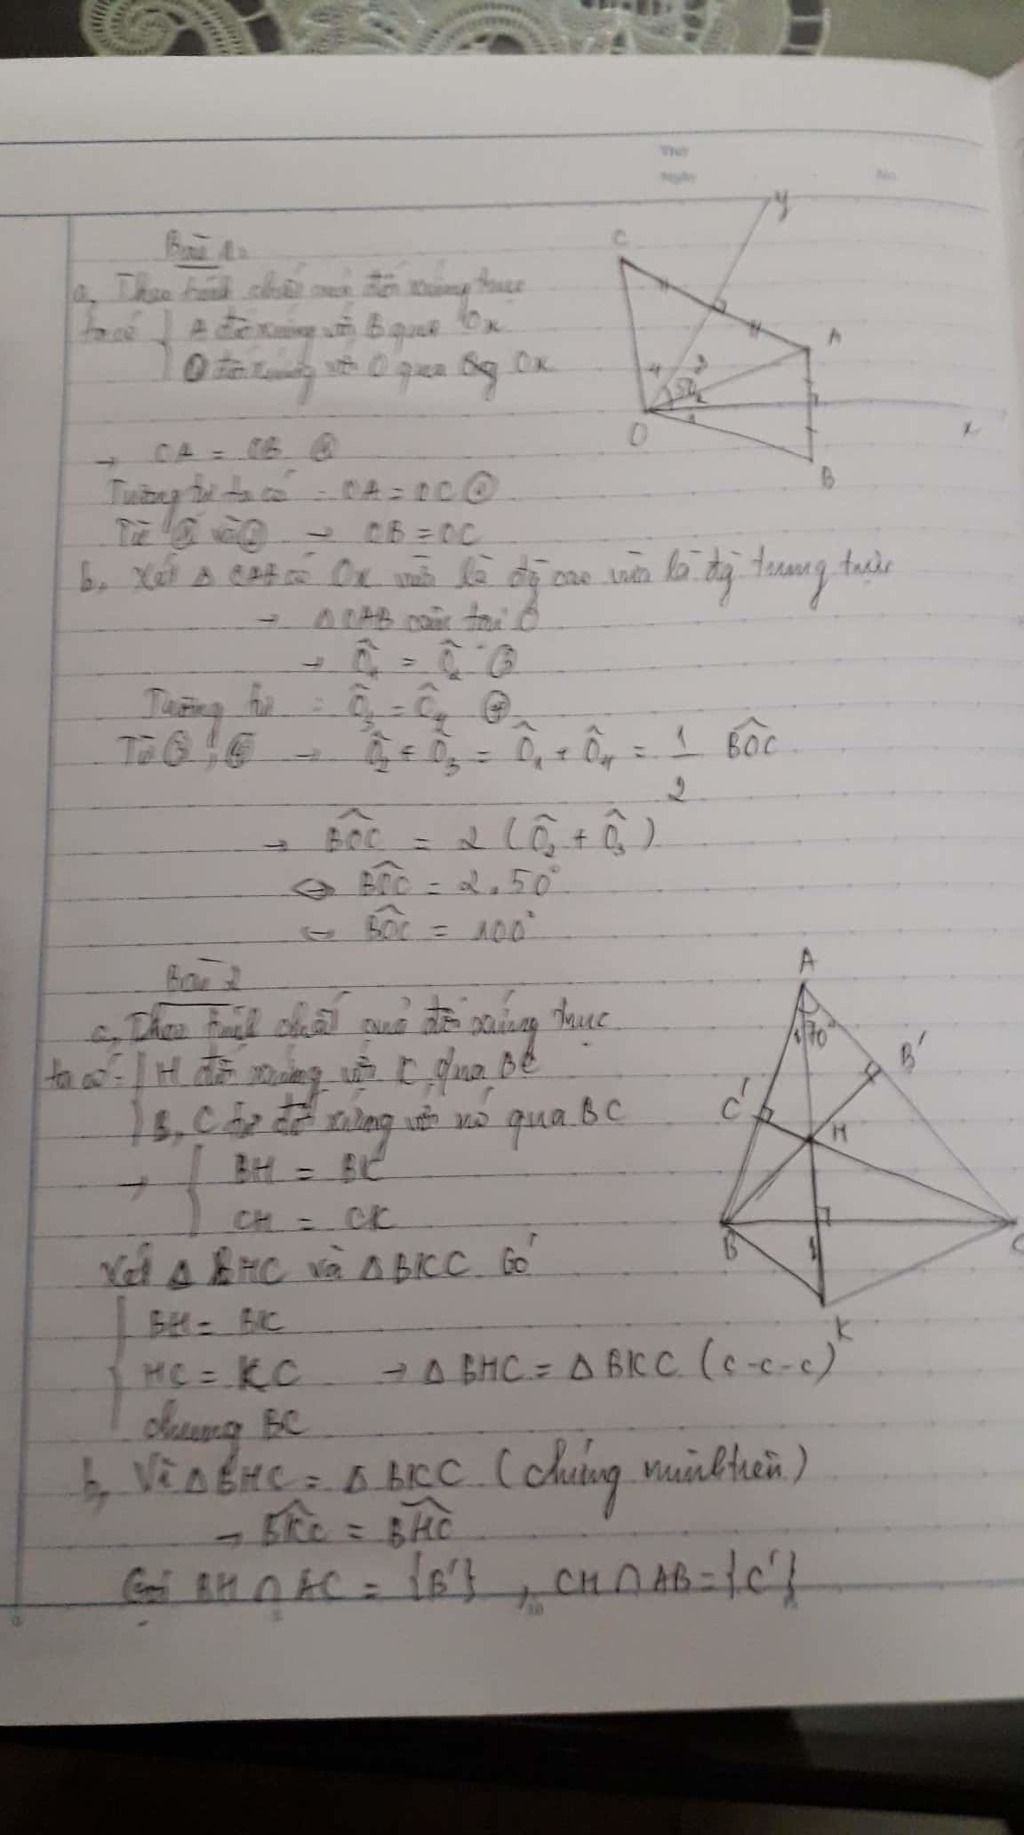 Thứ
Ngày No.
Bài 1:
a, Theo tính chất của đối xứng trục
ta có { A đối xứng với B qua Ox
O đối xứng với O qua Ox
→ OA = OB ①
Tương tự ta có : OA = OC ②
Từ ① và ② → OB = OC
b, Xét Δ OAB có Ox vừa là đg cao vừa là đg trung trực
→ Δ OAB cân tại O
→ Ô₁ = Ô₂ ③
Tương tự : Ô₃ = Ô₄ ④
Từ ③, ④ → Ô₂ + Ô₃ = Ô₁ + Ô₄ = 1/2 BOC
→ BOC = 2 (Ô₂ + Ô₃)
⇔ BOC = 2.50°
⇔ BOC = 100°
C
y
A
O
B
x
50°
1
2
3
4
Bài 2
a, Theo tính chất của đối xứng trục
ta có { H đối xứng với K qua BC
B, C đối xứng với nó qua BC
→ { BH = BK
CH = CK
Xét Δ BHC và Δ BKC có
{ BH = BK
HC = KC → Δ BHC = Δ BKC (c-c-c)
chung BC
b, Vì Δ BHC = Δ BKC (chứng minh trên)
→ BKC = BHC
Gọi BH ∩ AC = {B'} , CH ∩ AB = {C'}
A
70°
B'
C'
H
B
C
K